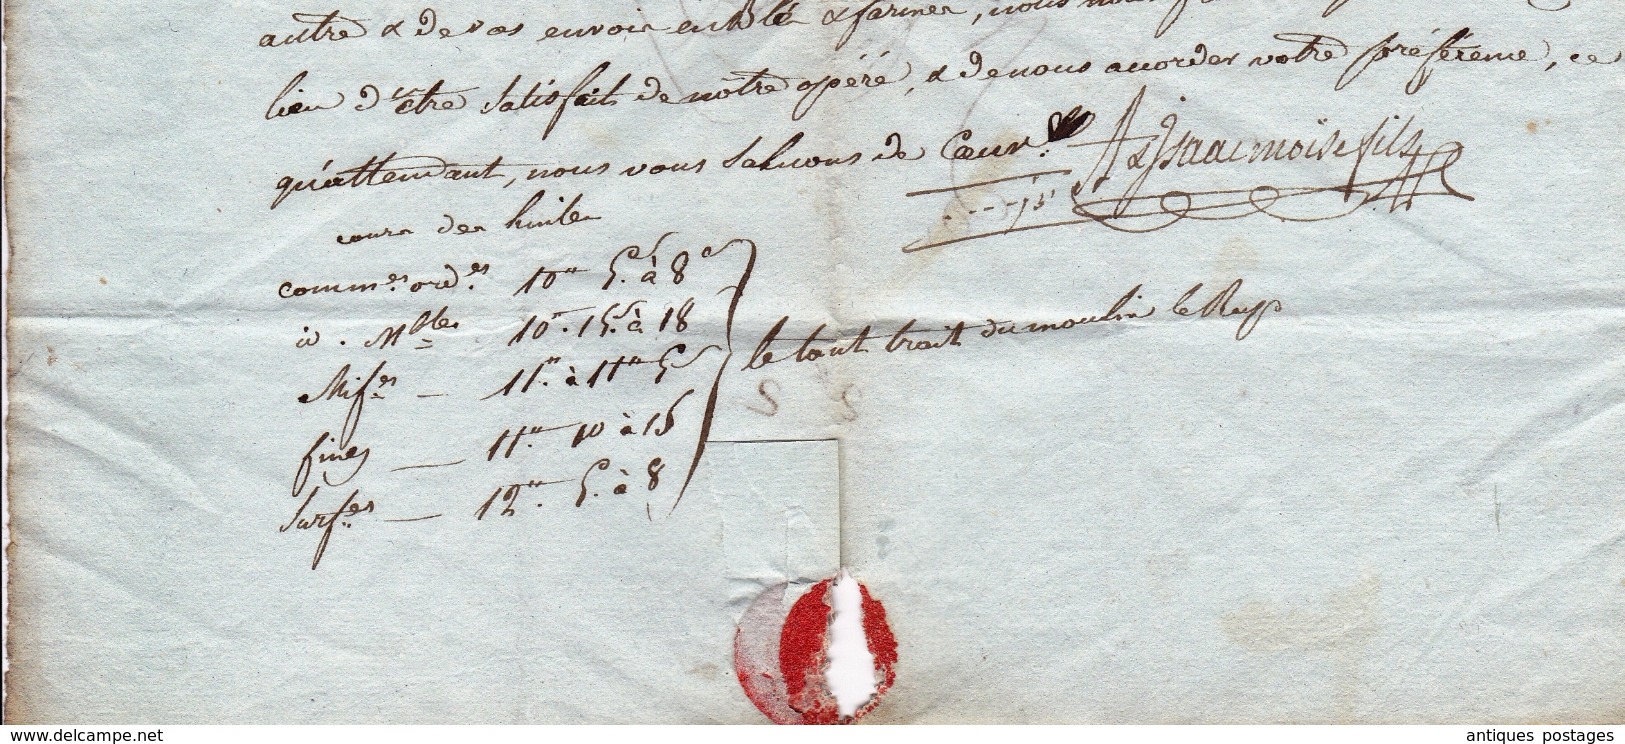 autre & de vos envoir en Blé & farines, nous nous
lieu d'être satisfaits de notre opéré, & de nous accorder votre préférence, ce
qu'attendant, nous vous saluons de Cœur. A & Isaac moïse fils
cours des huiles
comm.es ord.es 10" 5. à 8
id. Mlles 10". 15. à 18
Mif.es — 11". à 11" 5
fines — 11". 10 à 15
Surf.es — 12". 5. à 8
le tout trait du moulin le Rup
www.delcampe.net
antiques postages